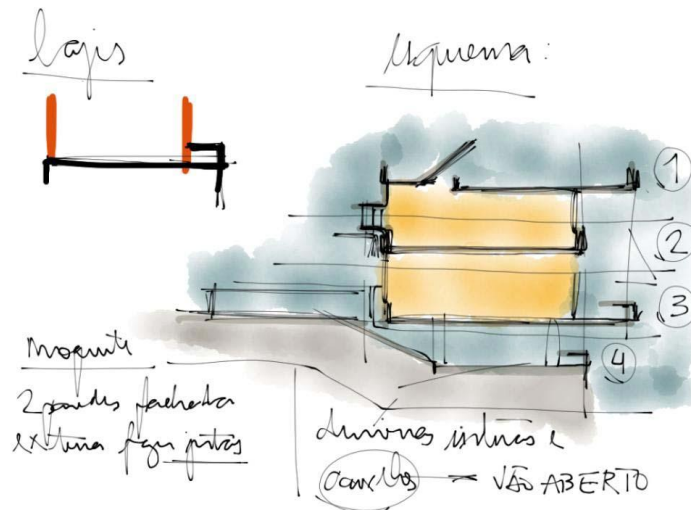 lajis
esquema:
1
2
3
4
maquete
2 paredes fachada
externa juntas
divisórias internas e
caixilhos — VÃO ABERTO